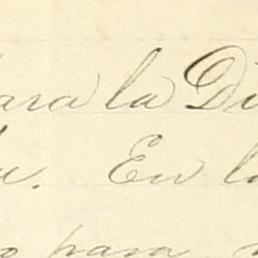 para la Di
u. En l
o para